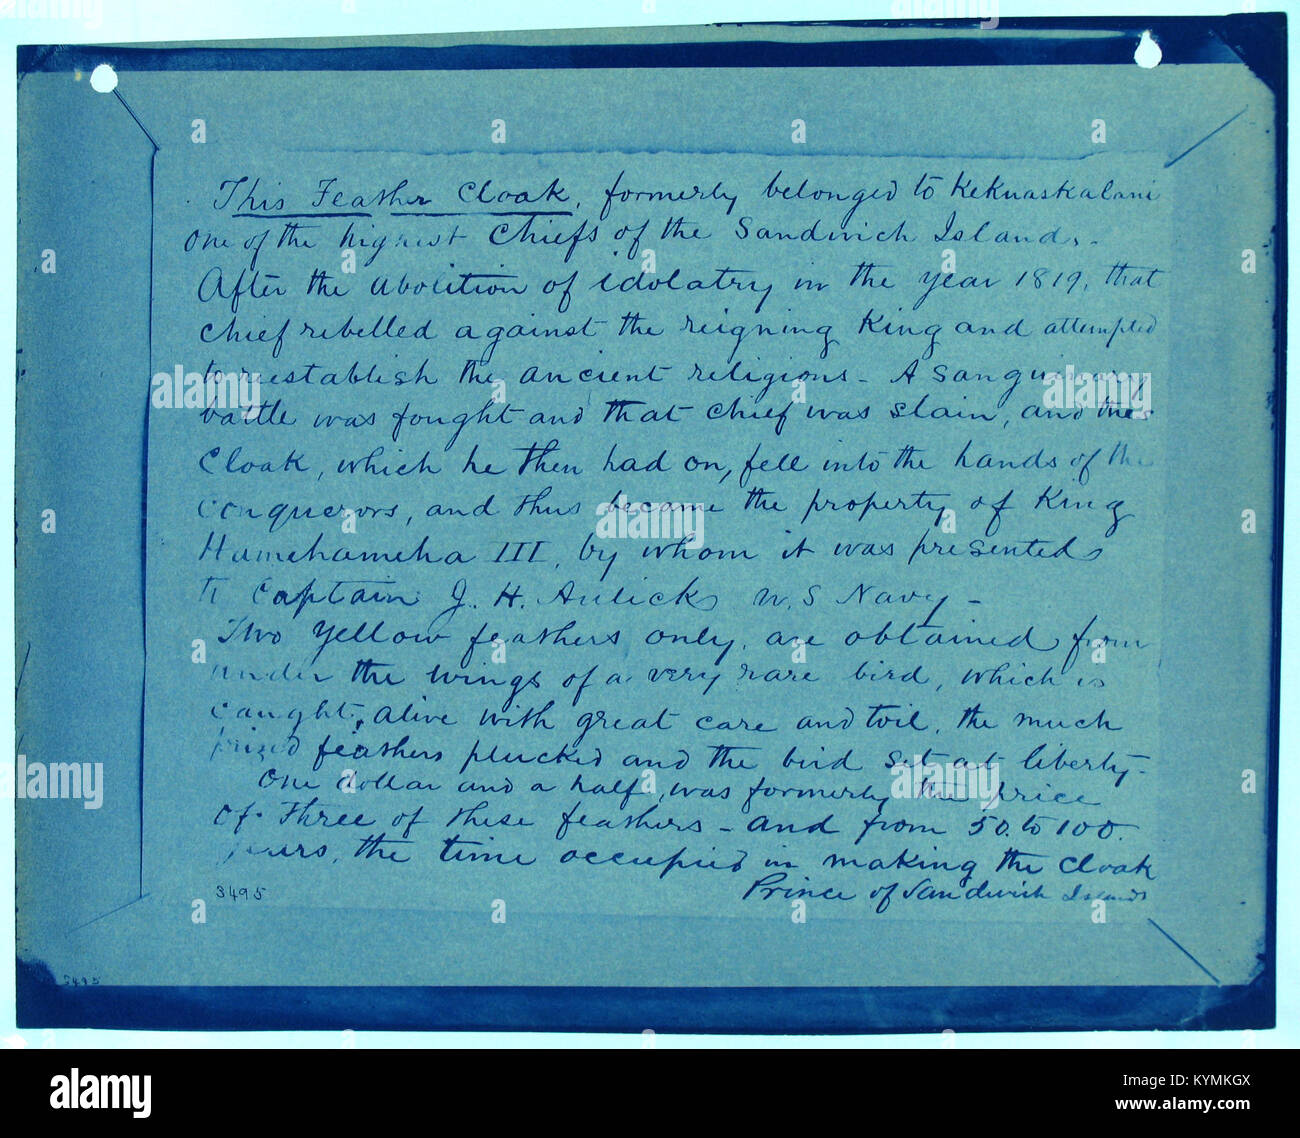 This Feather Cloak, formerly belonged to Kekuaskalani
one of the highest Chiefs of the Sandwich Islands.
After the abolition of idolatry in the year 1819, that
chief rebelled against the reigning King and attempted
to reestablish the ancient religions - A Sanguinary
battle was fought and that chief was slain, and this
Cloak, which he then had on, fell into the hands of the
conquerors, and thus became the property of King
Hamehameha III, by whom it was presented
to Captain J. H. Aulick, U.S Navy -
Two yellow feathers only, are obtained from
under the wings of a very rare bird, which is
caught, alive with great care and toil, the much
prized feathers plucked and the bird set at liberty -
One dollar and a half, was formerly the price
of Three of these feathers - and from 50. to 100.
years, the time occupied in making the cloak
3495 Prince of Sandwich Islands
3495
alamy
Image ID: KYMKGX
www.alamy.com